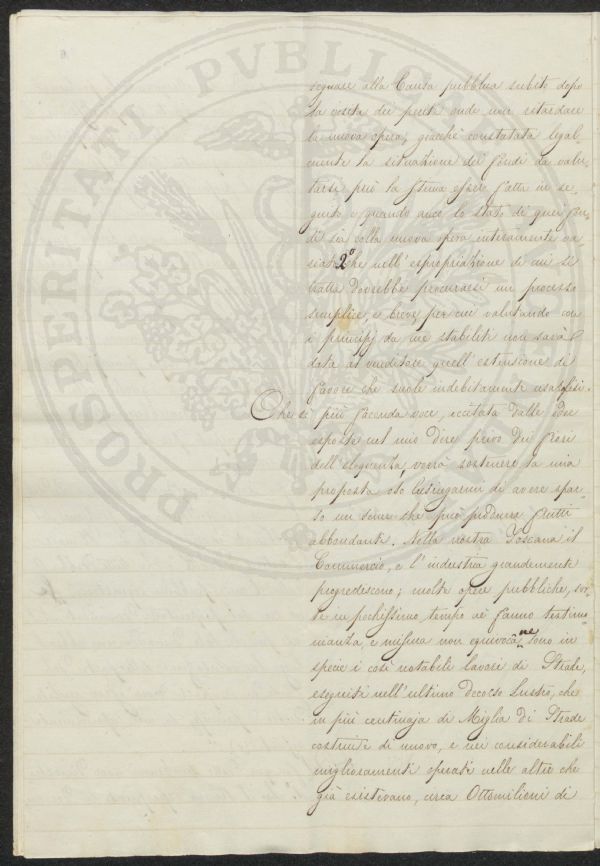 PROSPERITATI PVBLICAE
segnare alla Causa pubblica subito dopo
la visita dei periti onde non ritardare
la nuova opera, giacchè constatata legal-
mente la situazione dei fondi da valu-
tarsi può la stima esser fatta in se-
guito e quando anco lo stato di quei fon-
di sia colla nuova opera interamente va
riato 2° che nell'espropriazione di cui si
tratta dovrebbe procurarsi un processo
semplice, e breve, per cui valutando con
i principj da me stabiliti non sarà
data al venditore quell'estensione di
favore che suole indebitamente usarsi.
Che se più faconda voce, eccitata dalle idee
esposte nel mio dire privo dei fiori
dell'eloquenza vorrà sostenere la mia
proposta oso lusingarmi di avere spar-
so un seme che può produrre frutti
abbondanti. Nella nostra Toscana il
Commercio, e l'industria grandemente
progrediscono; molte opere pubbliche, sor-
te in pochissimo tempo ne fanno testimo-
nianza, e misura non equivoca, ne sono in
specie i così notabili lavori di Strade,
eseguiti nell'ultimo decorso Lustro, che
in più centinaja di Miglia di Strade
costruite di nuovo, e nei considerabili
miglioramenti operati nelle altre che
già esistevano, circa Ottomilioni di